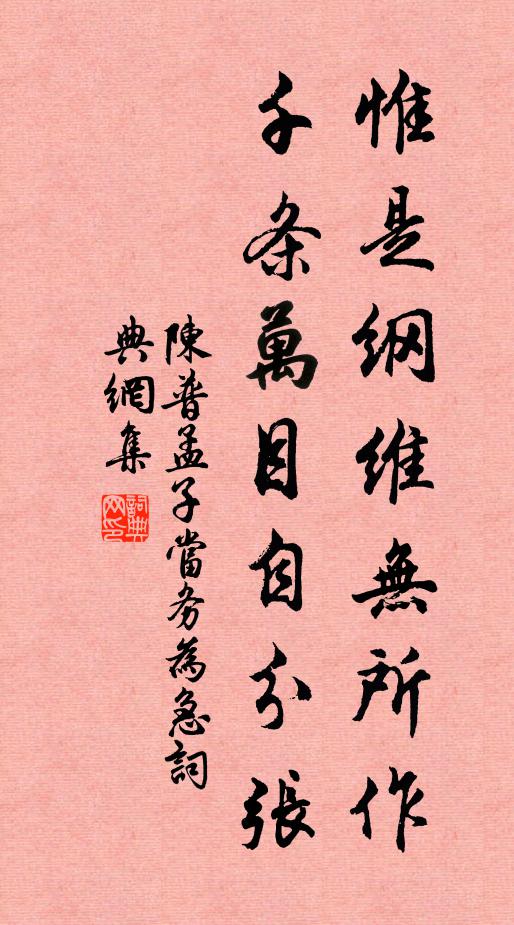 惟是纲维無所作
千条萬目自分張
陳普孟子當务為急詞
典網集
詞典网印